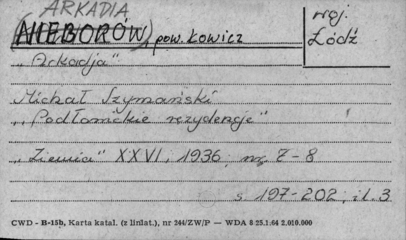 ARKADIA
(NIEBORÓW) pow. Łowicz
woj.
Łódź
„Arkadja"
Michał Szymański
„Podłowickie rezydencje"
„Ziemia" XXVI, 1936, nr 7-8
s. 197-202, il. 3
CWD - B-15b, Karta katal. (z liniat.), nr 244/ZW/P — WDA 8 25.1.64 2.010.000